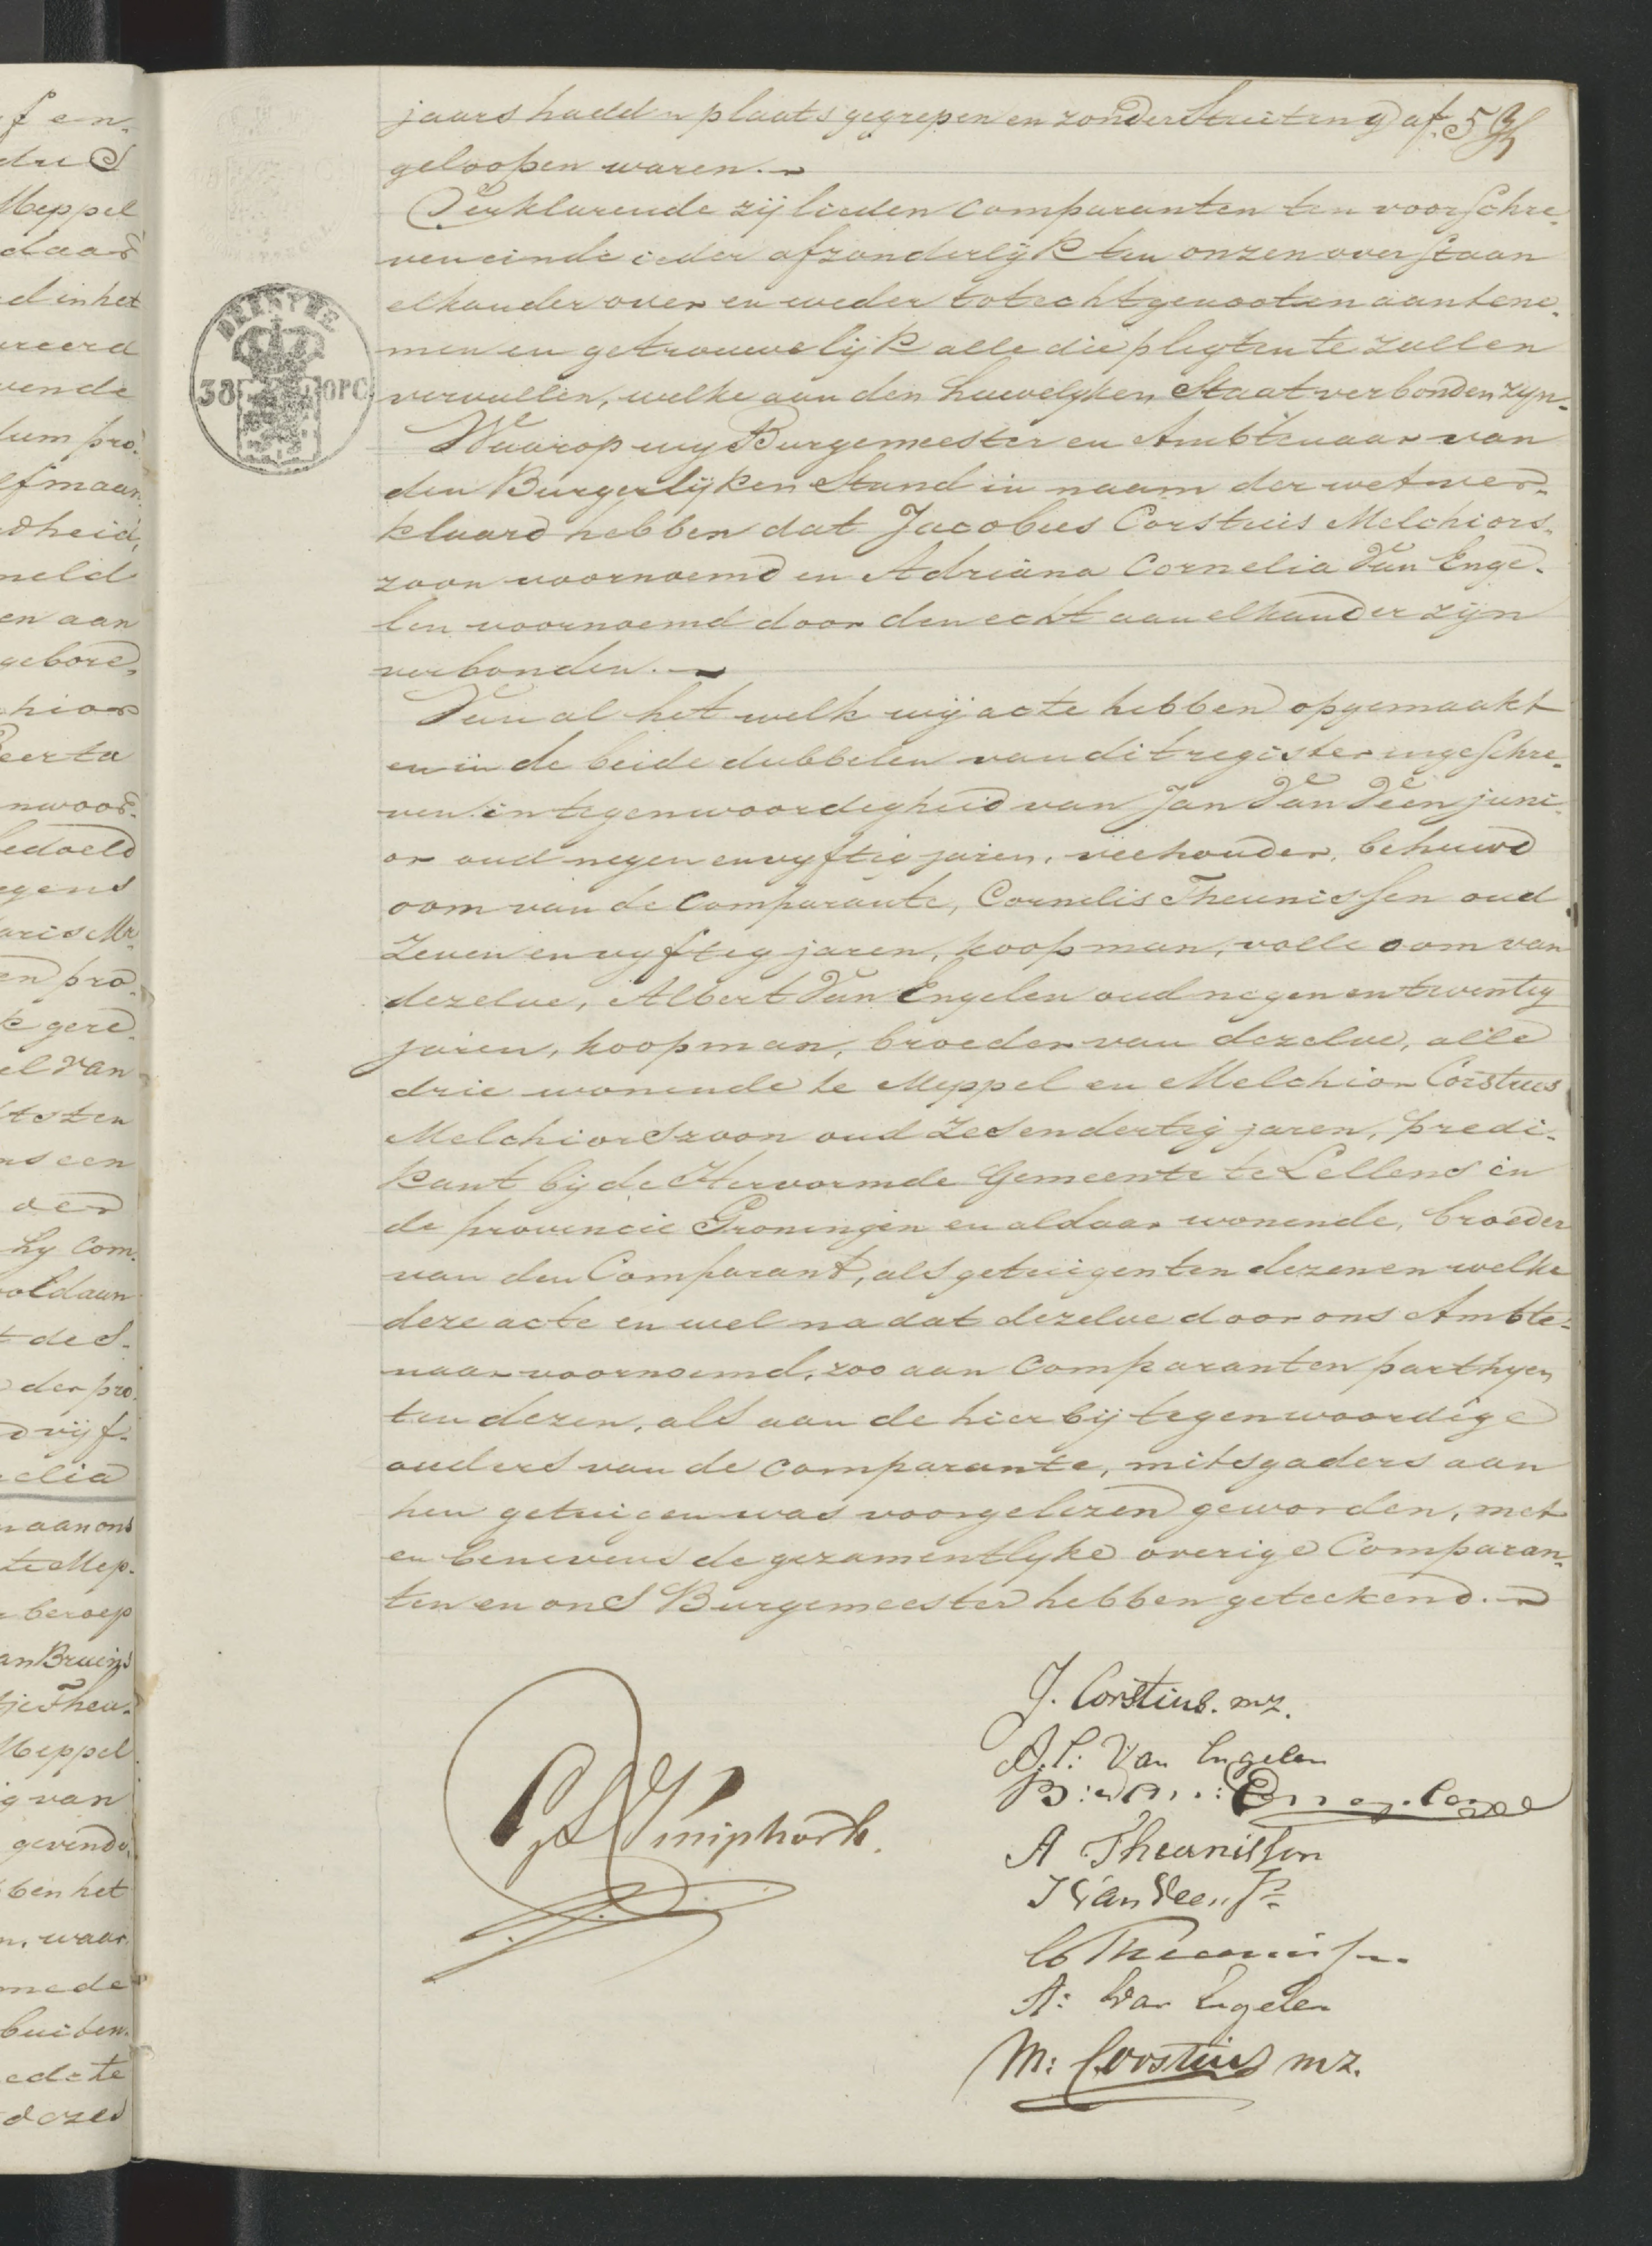 jaars hadden plaats gegrepen en zonder Stuiting af. 5
geloopen waren.
Verklarende zij lieden Comparanten ten voorschre-
ven einde ieder afzonderlyk ten onzen overstaan
elkander over en weder tot echtgenooten aantene-
men en getrouwelijk alle die plegten te zullen
vervullen, welke aan den huwelyken Staat verbonden zyn.
Waarop wy Burgemeester en Ambtenaar van
den Burgerlijken Stand in naam der wet ver-
klaard hebben dat Jacobus Corstius Melchiors-
zoon voornoemd en Adriana Cornelia Van Enge-
len voornoemd door den echt aan elkander zijn
verbonden.
Van al het welk wij acte hebben opgemaakt
en in de beide dubbelen van dit register ingeschre-
ven in tegenwoordigheid van Jan Van Veen juni-
or oud negen en vyftig jaren, veehouder, behuwd
oom van de Comparante, Cornelis Theunissen oud
Zeven en vyftig jaren, koopman, volle oom van
dezelve, Albert Van Engelen oud negen en twentig
jaren, koopman, broeder van dezelve, alle
drie wonende te Meppel en Melchior Corstius
Melchiorszoon oud Zes en dertig jaren, predi-
kant bij de Hervormde Gemeente te Lellens in
de provincie Groningen en aldaar wonende, broeder
van den Comparant, als getuigen ten dezen en welke
deze acte en wel na dat dezelve door ons Ambte-
naar voornoemd, zoo aan Comparanten parthyen
ten dezen, als aan de hier bij tegenwoordige
ouders van de Comparante, mitsgaders aan
hen getuigen was voorgelezen geworden, met
en benevens de gezamentlyke overige Comparan-
ten en ons Burgemeester hebben geteekend.
J. Corstius. mz.
A. C: Van Engelen
B: Engelen
A Theunissen
J Van Veen Jr
Knyphorst.
C Theunissen
A: Van Engelen
M: Corstius mz.
DRENTHE
38 OPC
f en
Meppel
daar
d in het
vende
lum pro-
f maan
dheid,
meld
en aan
gebore-
chior
eerta
nwoor-
bedoeld
egens
aris Mr
en pro-
k gere-
el van
ns een
der
hy Com-
oldaan
t des
der pro-
vijf-
elia
aan ons
te Mep-
beroep
an Bruins
tje Theu-
Meppel
g van
gevende
ben het
n, waar
mede
buiten
ede te
dezes